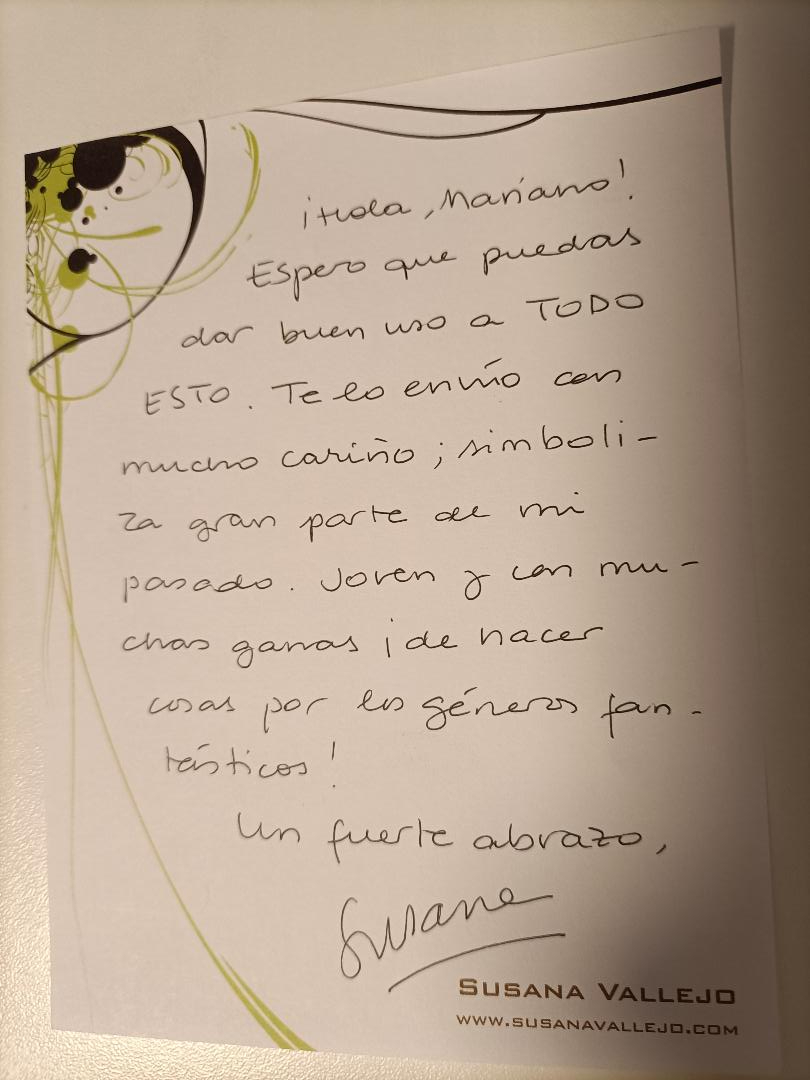 ¡Hola, Mariano!
Espero que puedas
dar buen uso a TODO
ESTO. Te lo envío con
mucho cariño; simboli-
za gran parte de mi
pasado. Joven y con mu-
chas ganas ¡de hacer
cosas por los géneros fan-
tásticos!
Un fuerte abrazo,
Susana
SUSANA VALLEJO
WWW.SUSANAVALLEJO.COM